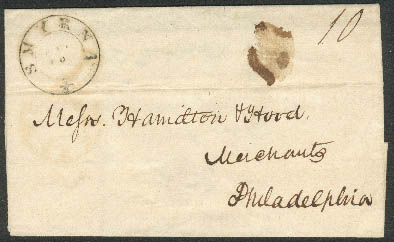 SMYRNA
10
Messrs. Hamilton & Hood.
Merchants
Philadelphia